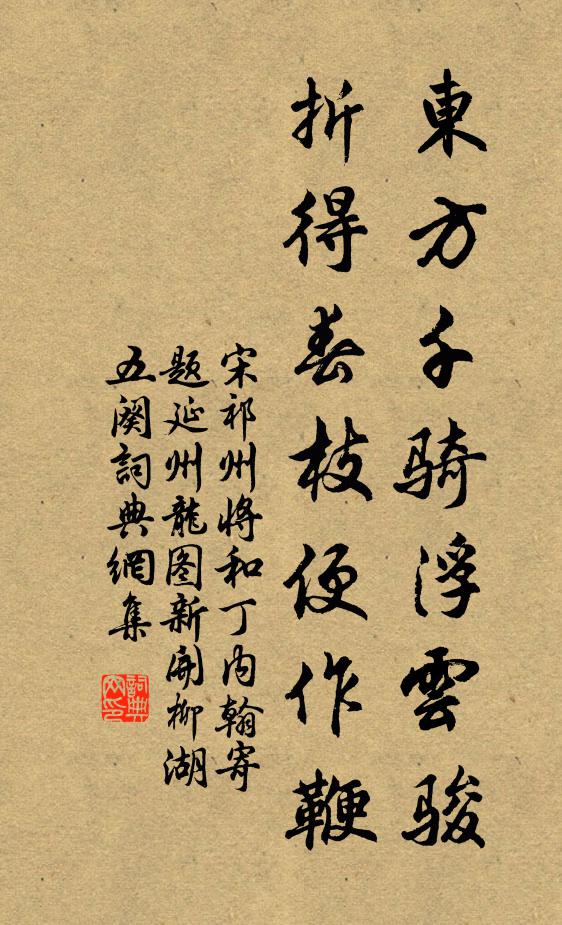 東方千騎浮雲駿
折得春枝便作鞭
宋祁州將和丁內翰寄
題延州龍图新開柳湖
五闋詞典網集
詞典
网印